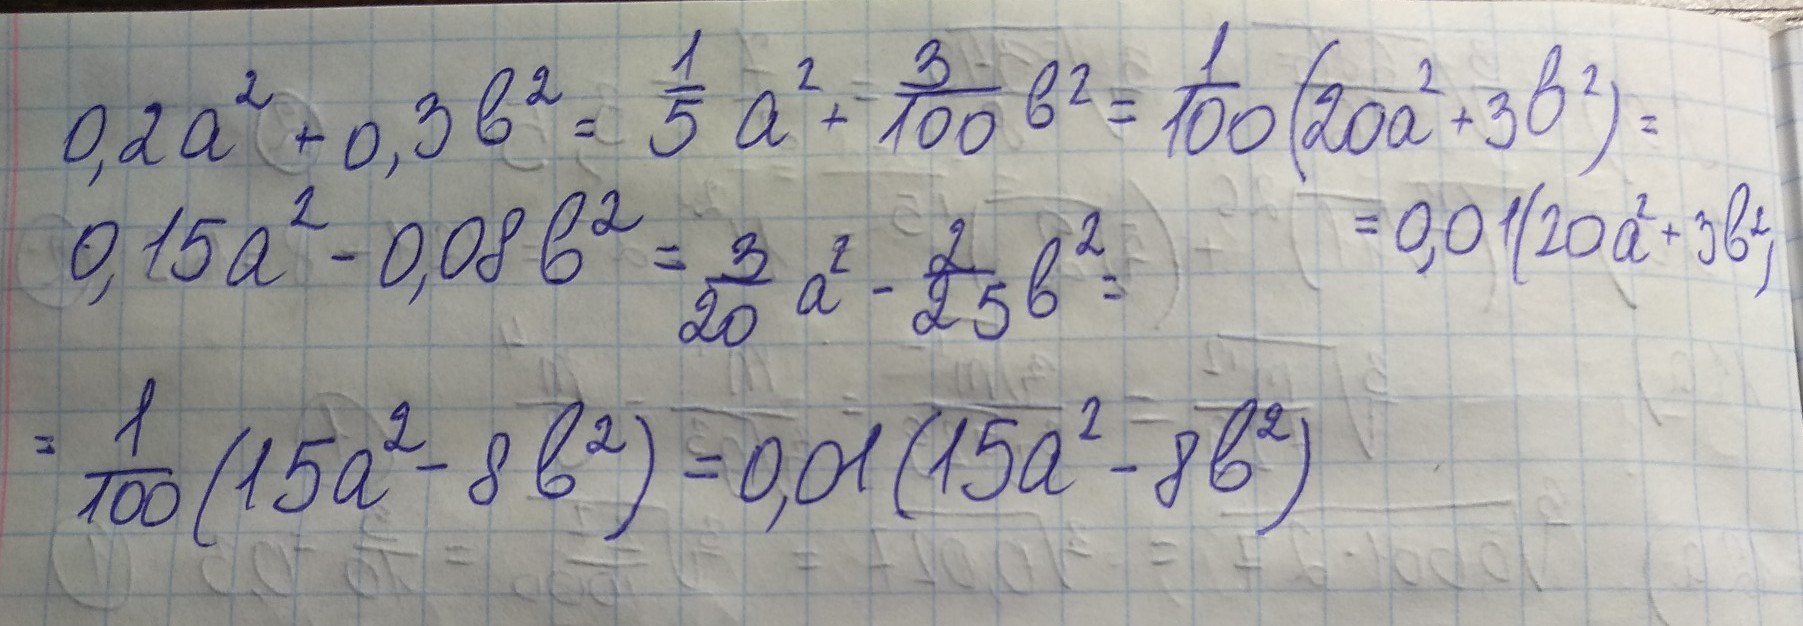 0,2a² + 0,3b² = 1/5 a² + 3/100 b² = 1/100 (20a² + 3b²) =
= 0,01(20a² + 3b²)
0,15a² - 0,08b² = 3/20 a² - 2/25 b² =
= 1/100 (15a² - 8b²) = 0,01 (15a² - 8b²)